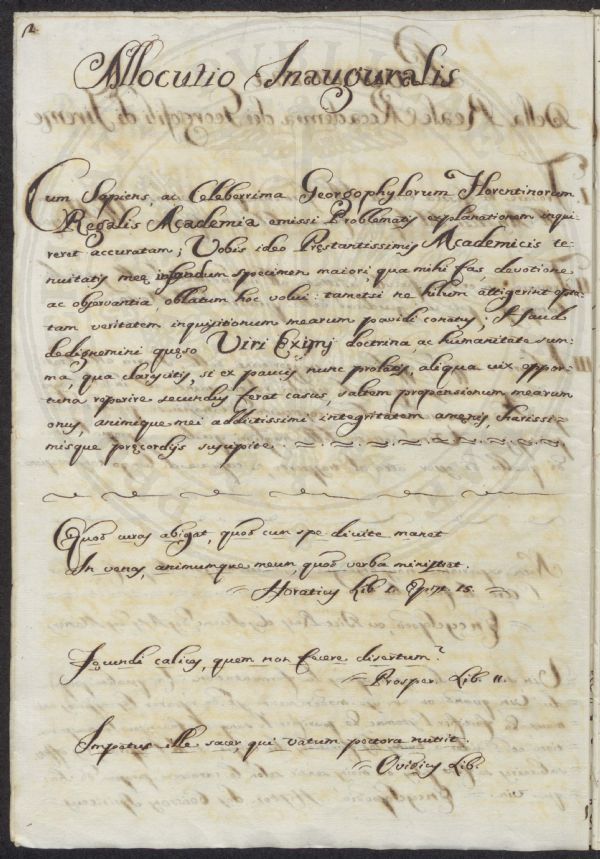 2.
Allocutio Inauguralis
Cum Sapiens, ac Celeberrima Georgophylorum Florentinorum
Regalis Academia emissi Problematis explanationem inqui-
reret accuratam; Vobis ideo Pręstantissimis Academicis te-
nuitatis meę specimen maiori, qua mihi fas devotione
ac observantia, oblatum hoc volui: tametsi ne hilum attigerint opta-
tam veritatem inquisitionum mearum pavidi conatus; Haud
dedignemini quęso Viri Eximij doctrina, ac humanitate sum-
ma, qua clarescitis, si ex paucis nunc prolatis, aliqua vix oppor-
tuna reperire secundus ferat casus, saltem propensionum mearum
onus, animique mei addictissimi integritatem amenis, charissi-
misque pręcordijs suscipite.
Quod curas abigat, quod cum spe divite manet
In venas, animumque meum, quod verba ministrat.
Horatius Lib. 1. Epist. 15.
Foęcundi calices, quem non fecere disertum?
Prosper. Lib. 11.
Impetus ille sacer, qui vatum pectora nutrit.
Ovidius Lib.